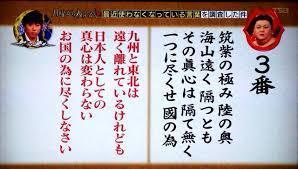 最近使わなくなっている
を調査した件
3番
筑紫の極み 陸の奥
海山遠く 隔つとも
その眞心は 隔て無く
一つに尽くせ 國の為
九州と東北は
遠く離れているけれども
日本人としての
真心は変わらない
お国の為に尽くしなさい